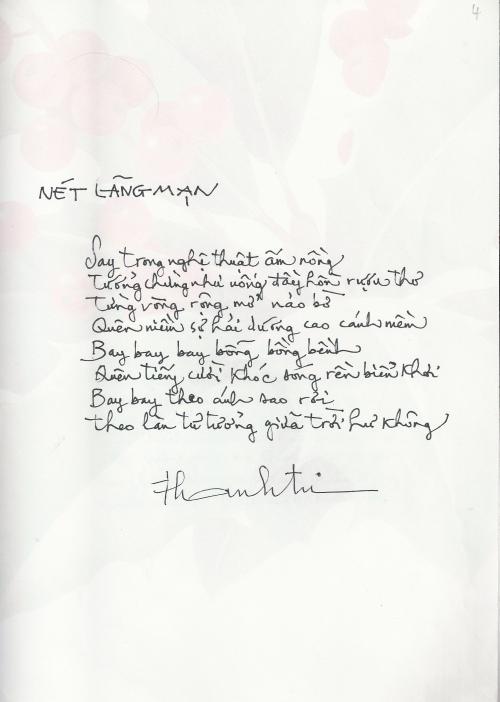 4
NÉT LÃNG MẠN
Say trong nghệ thuật ấm nồng
Tưởng chừng như uống đầy hồn rượu thơ
Từng vòng rộng mở nào bờ
Quên niềm sợ hãi dương cao cánh mềm
Bay bay bay bổng bồng bềnh
Quên tiếng cười khóc sóng rền biển khơi
Bay bay theo ánh sao rơi
Theo làn tư tưởng giữa trời hư không
Thanh Trí